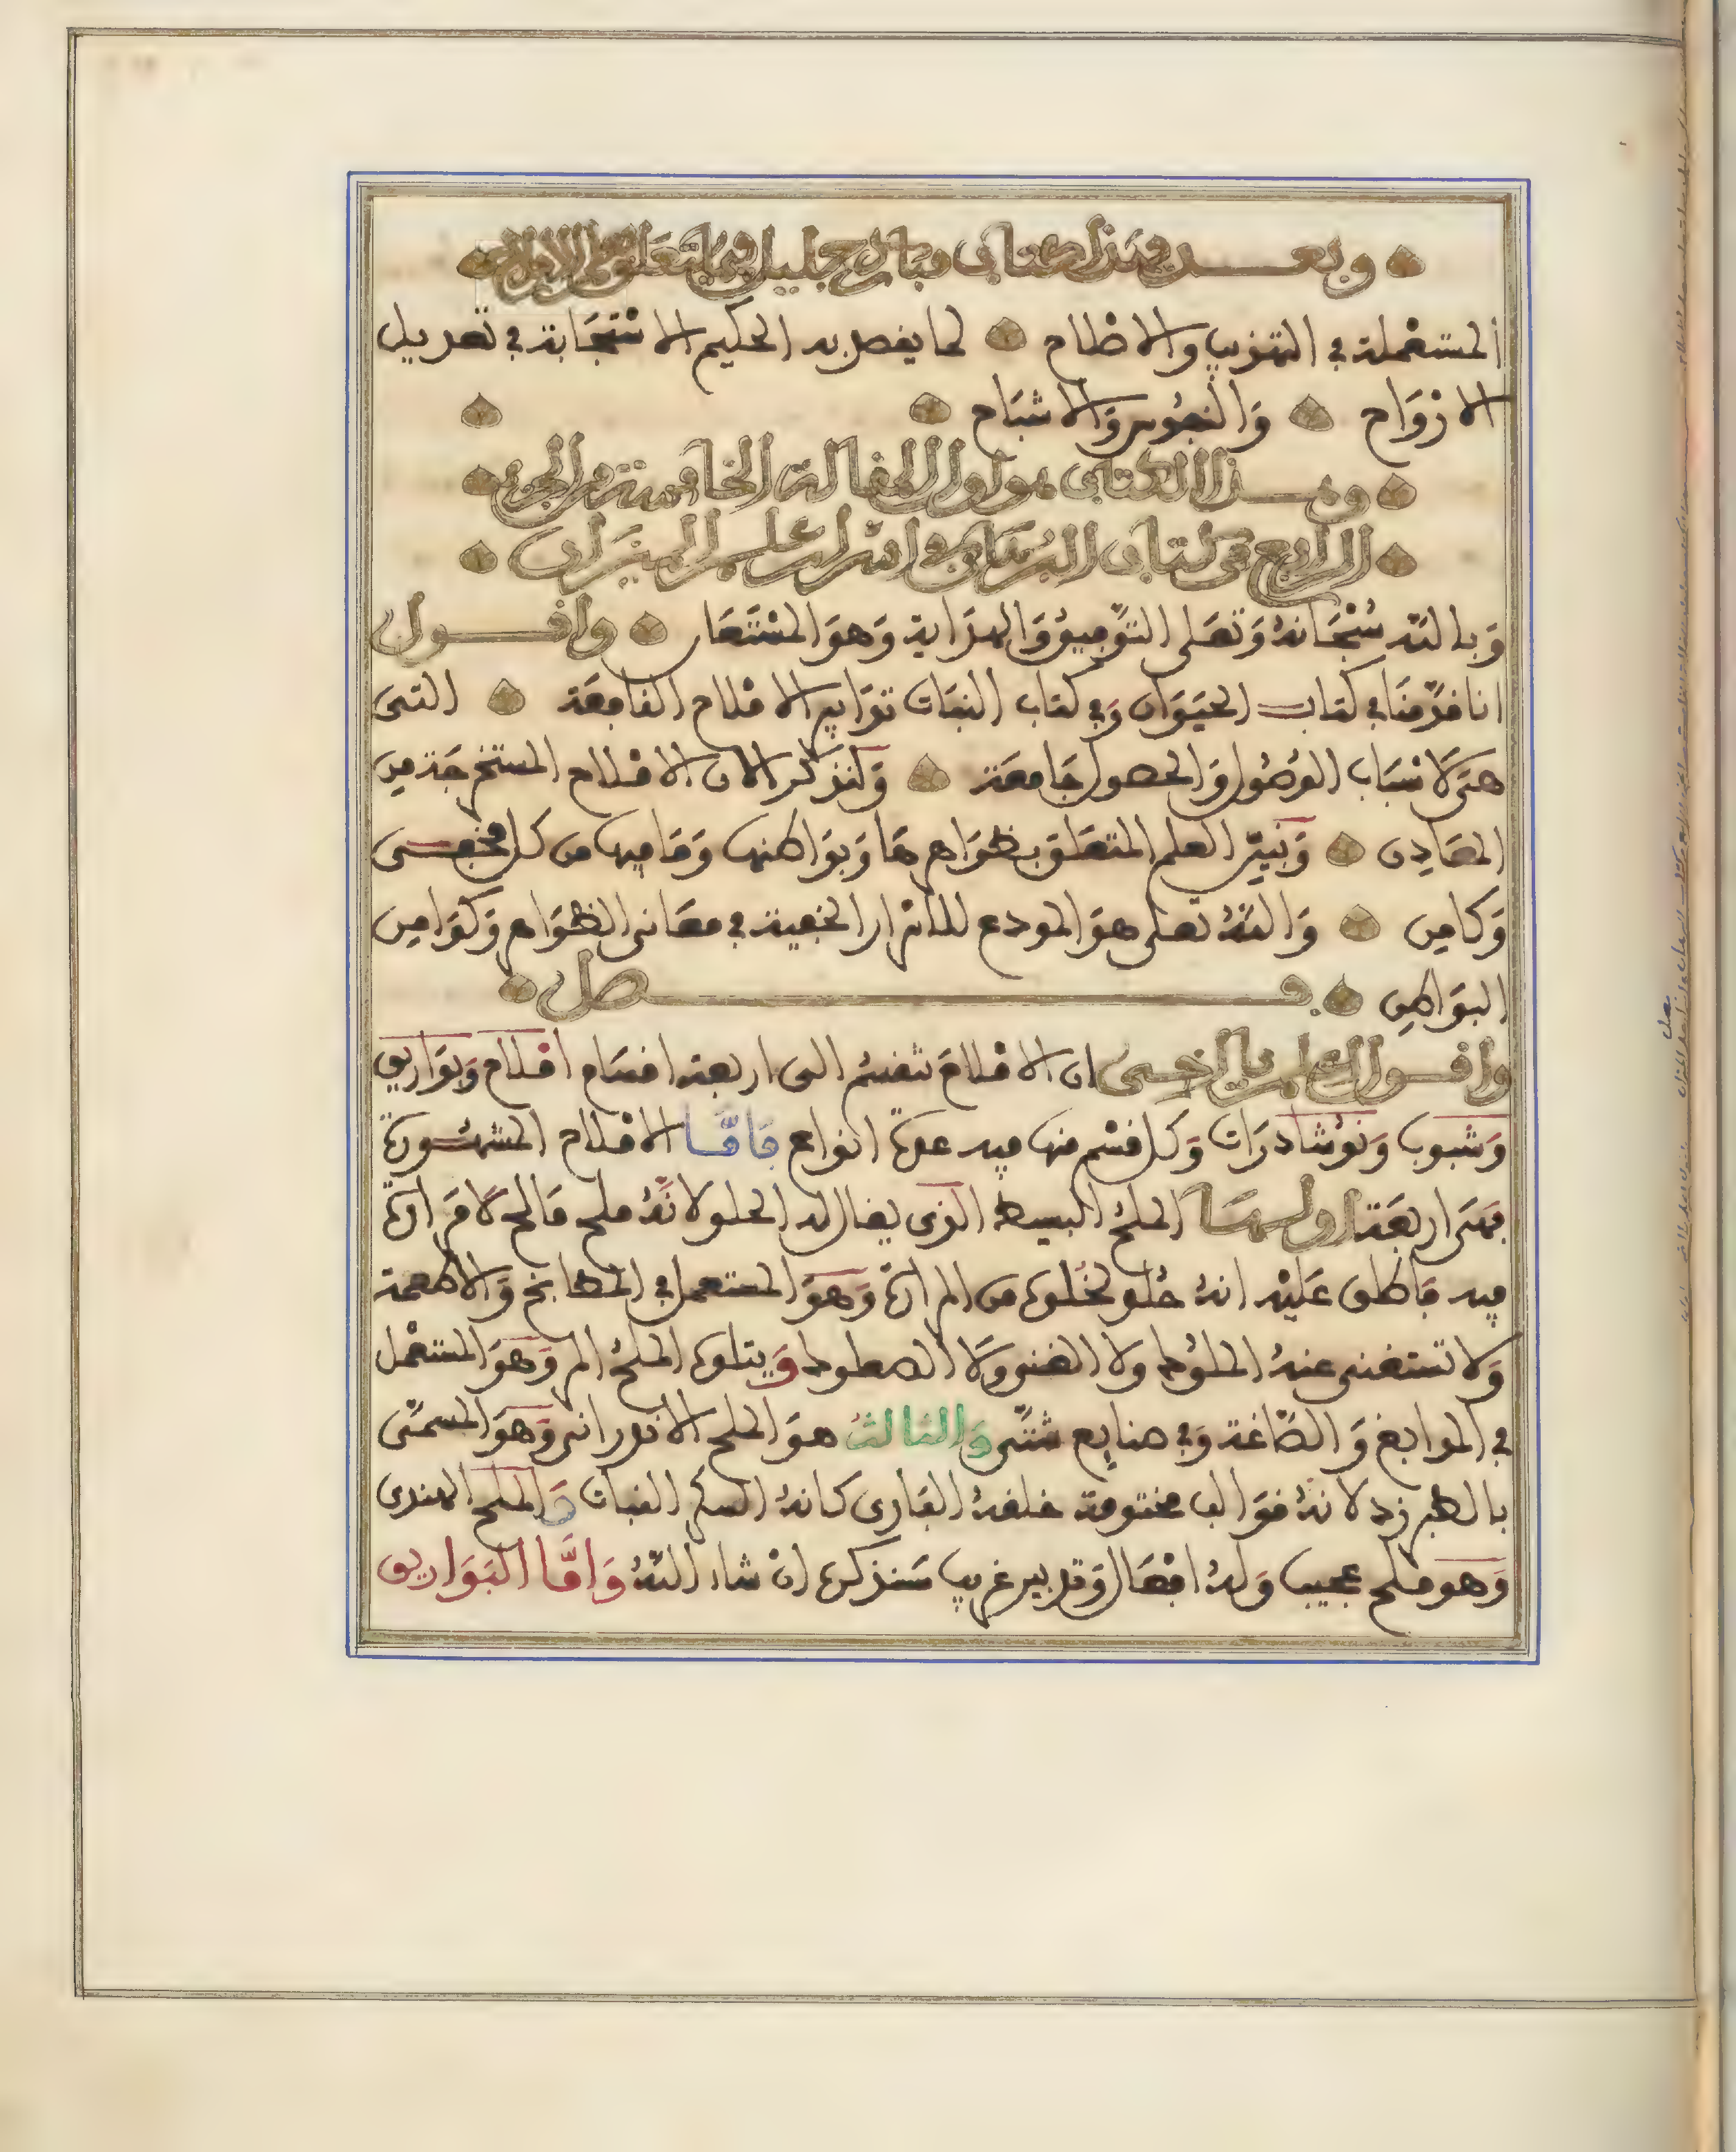 وبعد فهذا كتاب مبارك جليل فيما يتعلق بعلم الاملاح
المستعملة في التهذيب والاصلاح لما يفصل به الحكيم الاستجابة في تعديل
الارواح والنفوس والاشباح
وهذا الكتاب هو اول المقالة الخامسة من الجزء
الرابع من كتاب البرهان في اسرار علم الميزان
وَبالله سُبْحَانهُ وَتعَلى التوفِيق وَالهدَاية وَهوَ المسْتَعَان واقول
انا قدّمنَا في كتاب الحيَوَان وَفي كتاب النبَات توَابع الاملاح النافعَة التى
هىَ لاسْبَاب الوُصُول وَالحصول جَامعَة وَلنذكر الان الاملاح المستخرجَة مِن
المعَادِن وَنبيّن العلم المتعَلق بظوَاهرهَا وَبوَاطنها وَمَا فيها من كل مخفى
وَكامِن وَاللهُ تعلى هوَ المودع للاسْرار الخفية في معَانى الظوَاهر وَكوَامِن
البوَاطِن فصل
واقول ايها الاخ ان الاملاحَ تنقسم الى اربعة اقسَام املاح وَبوَاريق
وَشبوب وَنوُشادرَات وَكل قسْم منها فيه عدّة انواع فامّا الاملاح المشهورَة
فهىَ اربعَة اولهَا الملحُ البسيط الذى يقال له الحلو لانّهُ ملح مَالح لا مَرارَة
فيه فاطلق عَليْه انهُ حُلو لخلوّه من المرارَة وَهوَ المستعمل في المطابخ وَالاطعمة
وَلا تستغنى عنهُ الملوُك ولا الغنى وَلا الصعلوك وَيتلوه الملحُ المر وَهوَ المستعْمل
في المدابغ وَالصّاغة وَفي صنايع شتّى وَالثالث هوَ الملح الاندرانى وَهوَ المسمّى
بالطبرزد لانهُ قوَالب مختومة خلقهُ البَارى كانهُ السكّر النبات وَالملح الهندى
وَهو ملح عجيب وَلهُ افعَال وَتدبير غريب سَنذكره انْ شاء اللهُ وَامَّا البَوَاريق